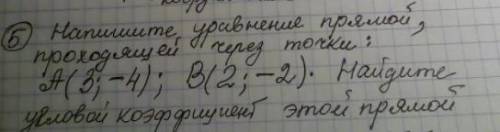 ⑤ Напишите уравнение прямой,
проходящей через точки:
A(3;-4); B(2;-2). Найдите
угловой коэффициент этой прямой